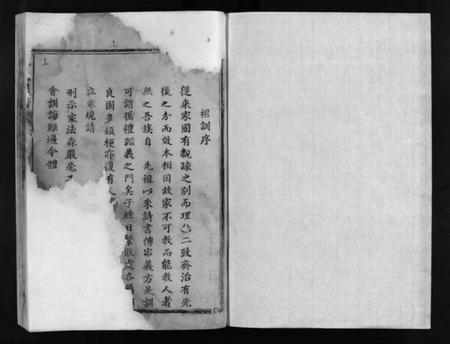 祖訓序
從来家國有親疎之别而理無二致齊治有先
後之分而效本相因故家不可教而能教人者
無之吾族自 先祖以来詩書傳家義方是訓
可謂循禮蹈義之門矣子姓日繁散處各
良固多頑梗亦復有人
立家規請
刑示家法森嚴毫
會訓誨難遍今體